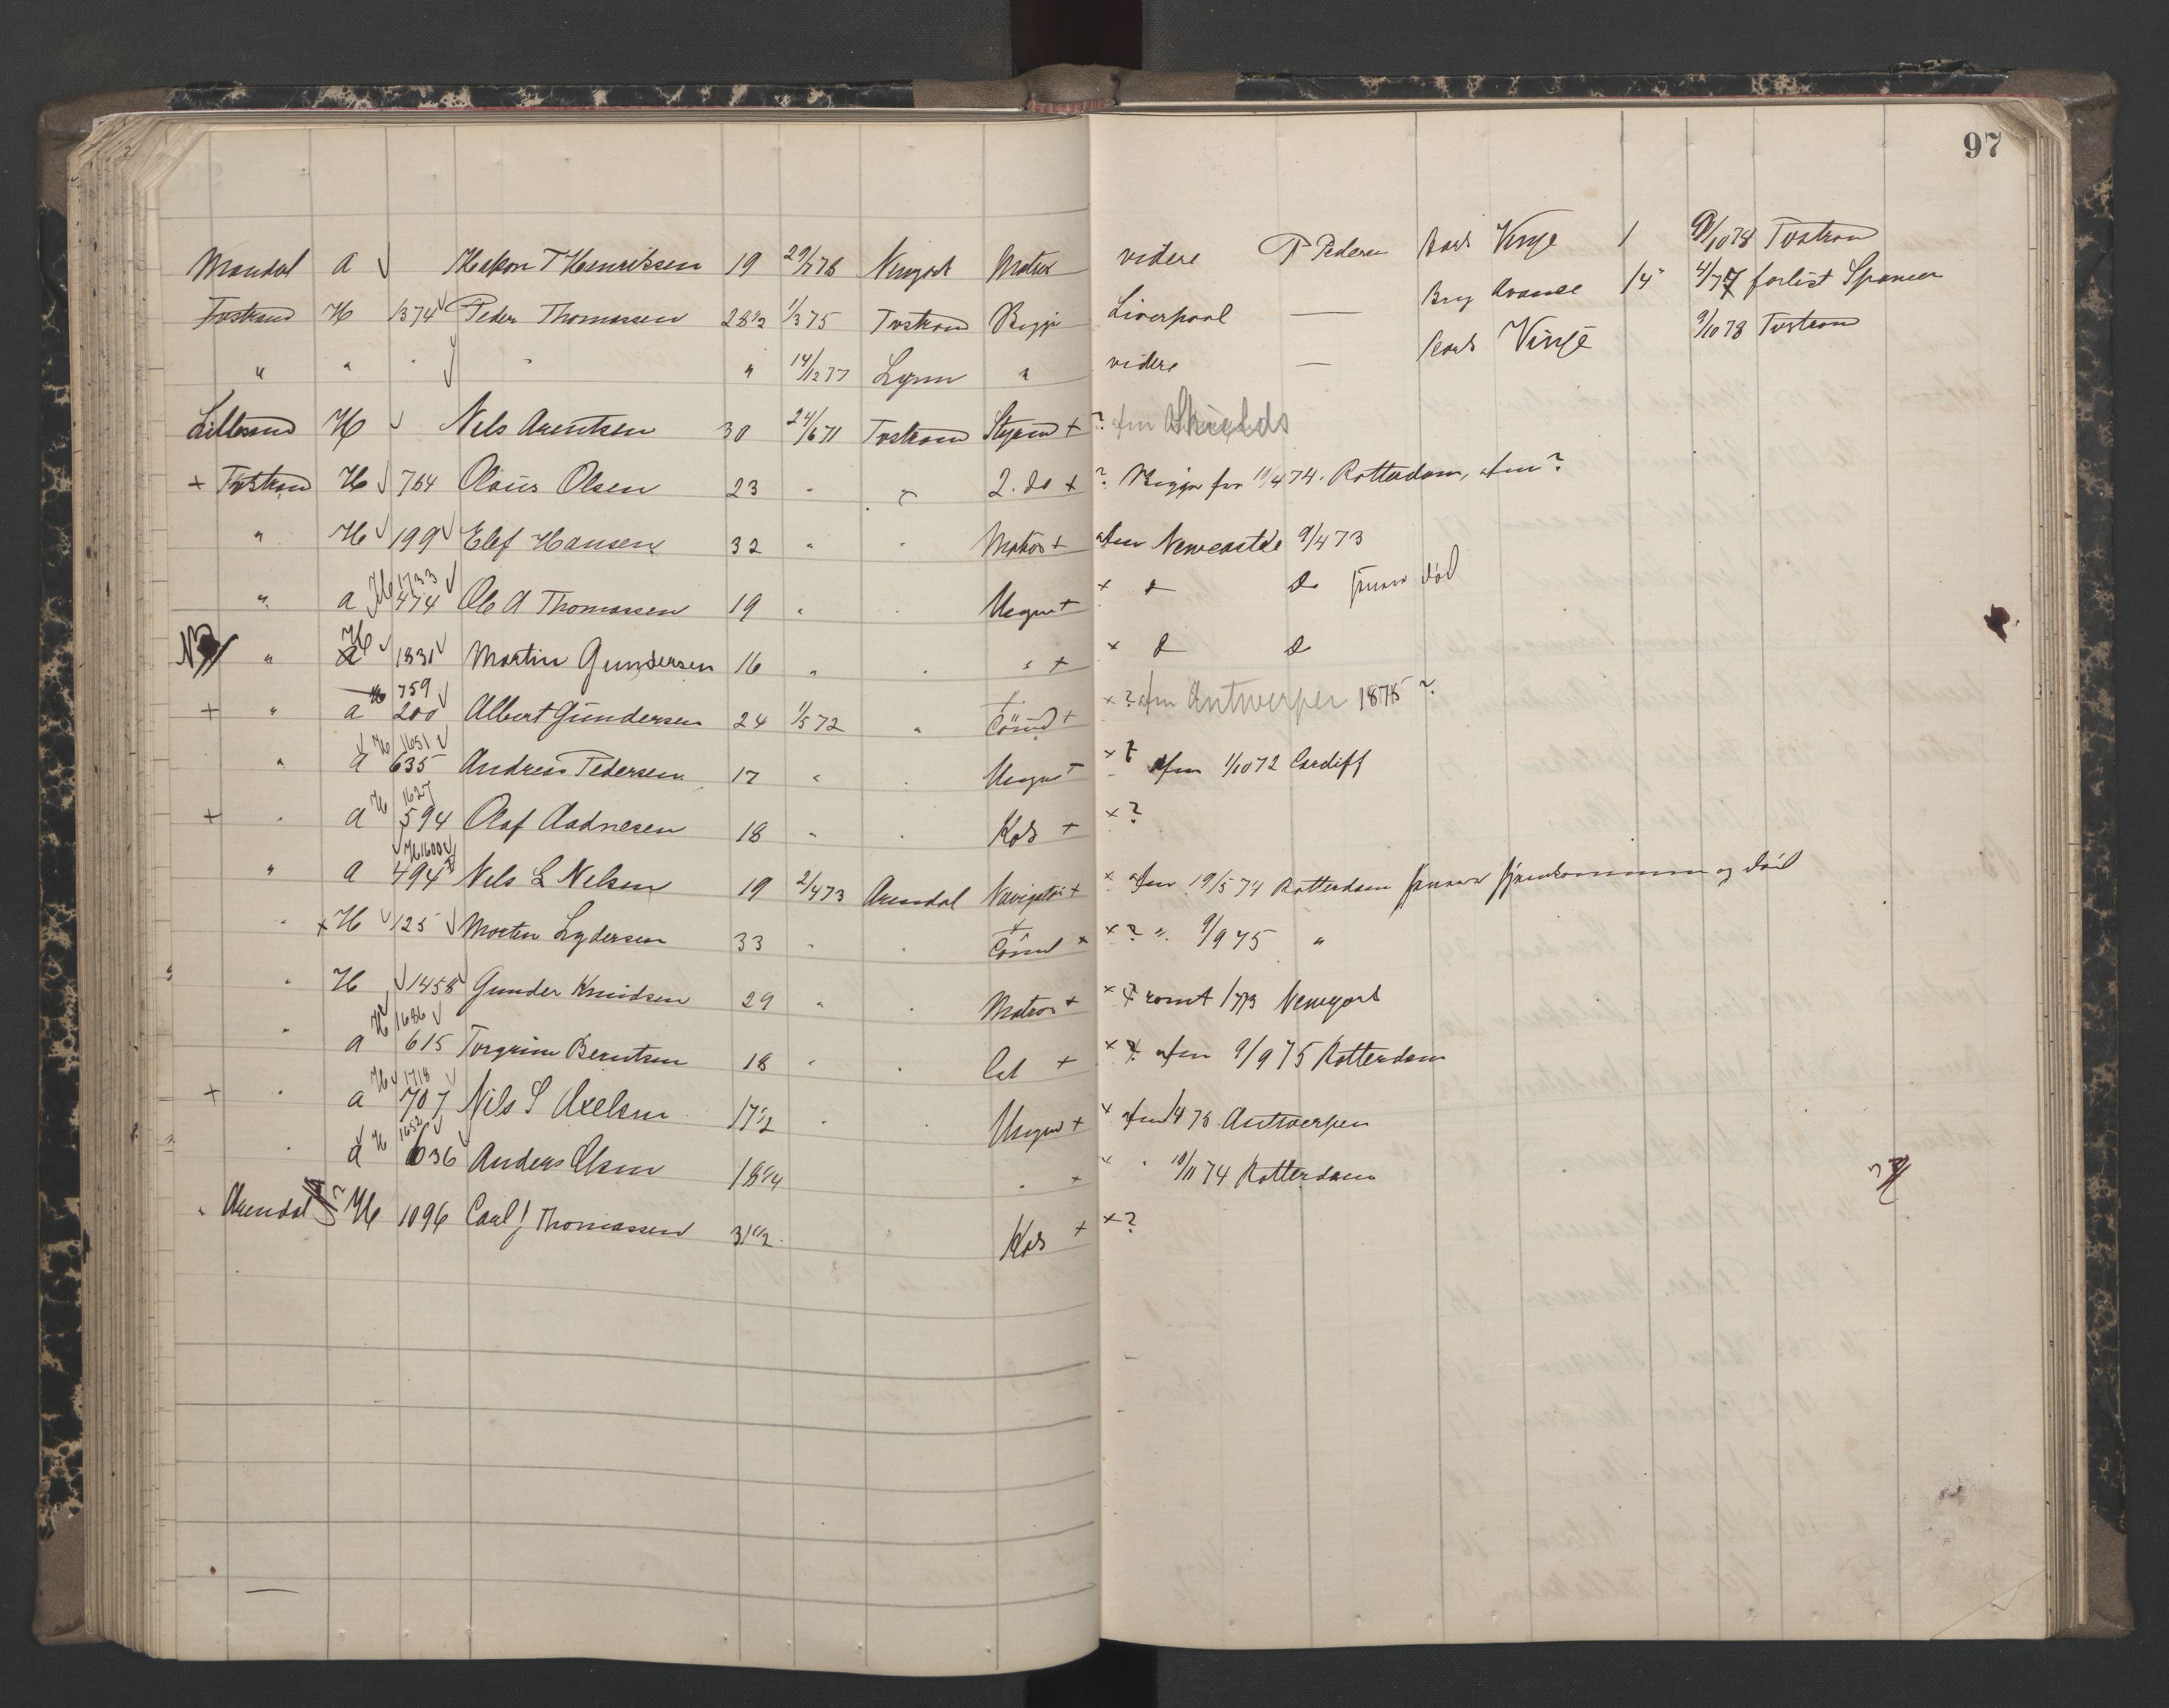 97
Mandal a √ Haakon T Henriksen 19 29/7 78 Newyork Matros videre P Pedersen Bark Vinge 1 9/10 78 Tvetran
Tvestrand H 1374 √ Peder Thomassen 28 1/2 1/3 75 Tvetran Bygg Liverpool — Brig Avance 14 4/77 forlist Spanien
" " " √ " " 14/12 77 Lynn " videre — Bark Vinge 9/10 78 Tvetran
Lillesand H √ Nels Arentsen 30 24/6 71 Tvetran Styrm + ? afm Shields
+ Tvetran H √ 764 Olaus Olsen 23 " " 2. do + ? 11/4 74. Rotterdam, afm ?
" H √ 199 √ Elef Hansen 32 " " Matros + afm Newcastle 9/4 73
" a H 1733 474 √ Ole A Thomassen 19 " " Ungm + + d d død
NB " a H √ 1831 √ Martin Gundersen 16 " " " + + d d
+ " a H 759 200 √ Albert Gundersen 24 1/5 72 " Tömd + + ? afm Antwerpen 1875 ?
" a √ H 1651 635 √ Andreas Pedersen 17 " " Ungm + + afm 1/10 72 Cardiff
+ " a H 1627 594 Olaf Aadnesen 18 " " Kok + + ?
" a √ H 1600 √ 494 Nels L Nelsen 19 2/4 73 Arendal + + afm 19/5 74 Rotterdam og død
" + H √ 125 √ Morten Lydersen 33 " " Tömd + + ? " 9/9 75 "
" H √ 1458 Gunder Knudsen 29 " " Matros + + romt 1/7 73 Newyork
" a H 1686 √ 615 Torgrim Berntsen 18 " " + + afm 9/9 75 Rotterdam
+ " a H √ 1718 √ 707 Nils S Axelsen 17 1/2 " " Ungm + + afm 1/4 75 Antwerpen
" a √ H 1652 √ 636 √ Anders Olsen 18 1/4 " + + " 10/11 74 Rotterdam
" Arendal H 1096 Carl J Thomassen 31 1/2 " Kok + + ?